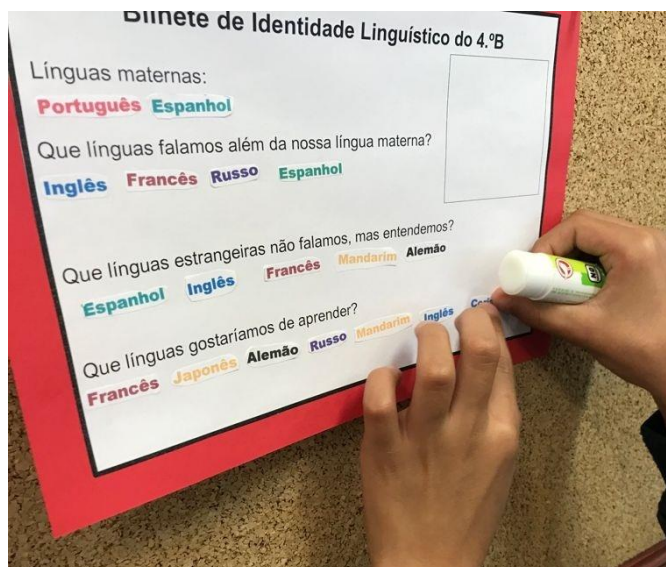 Bilhete de Identidade Linguístico do 4.ºB
Línguas maternas:
Português Espanhol
Que línguas falamos além da nossa língua materna?
Inglês Francês Russo Espanhol
Que línguas estrangeiras não falamos, mas entendemos?
Espanhol Inglês Francês Mandarim Alemão
Que línguas gostaríamos de aprender?
Francês Japonês Alemão Russo Mandarim Inglês